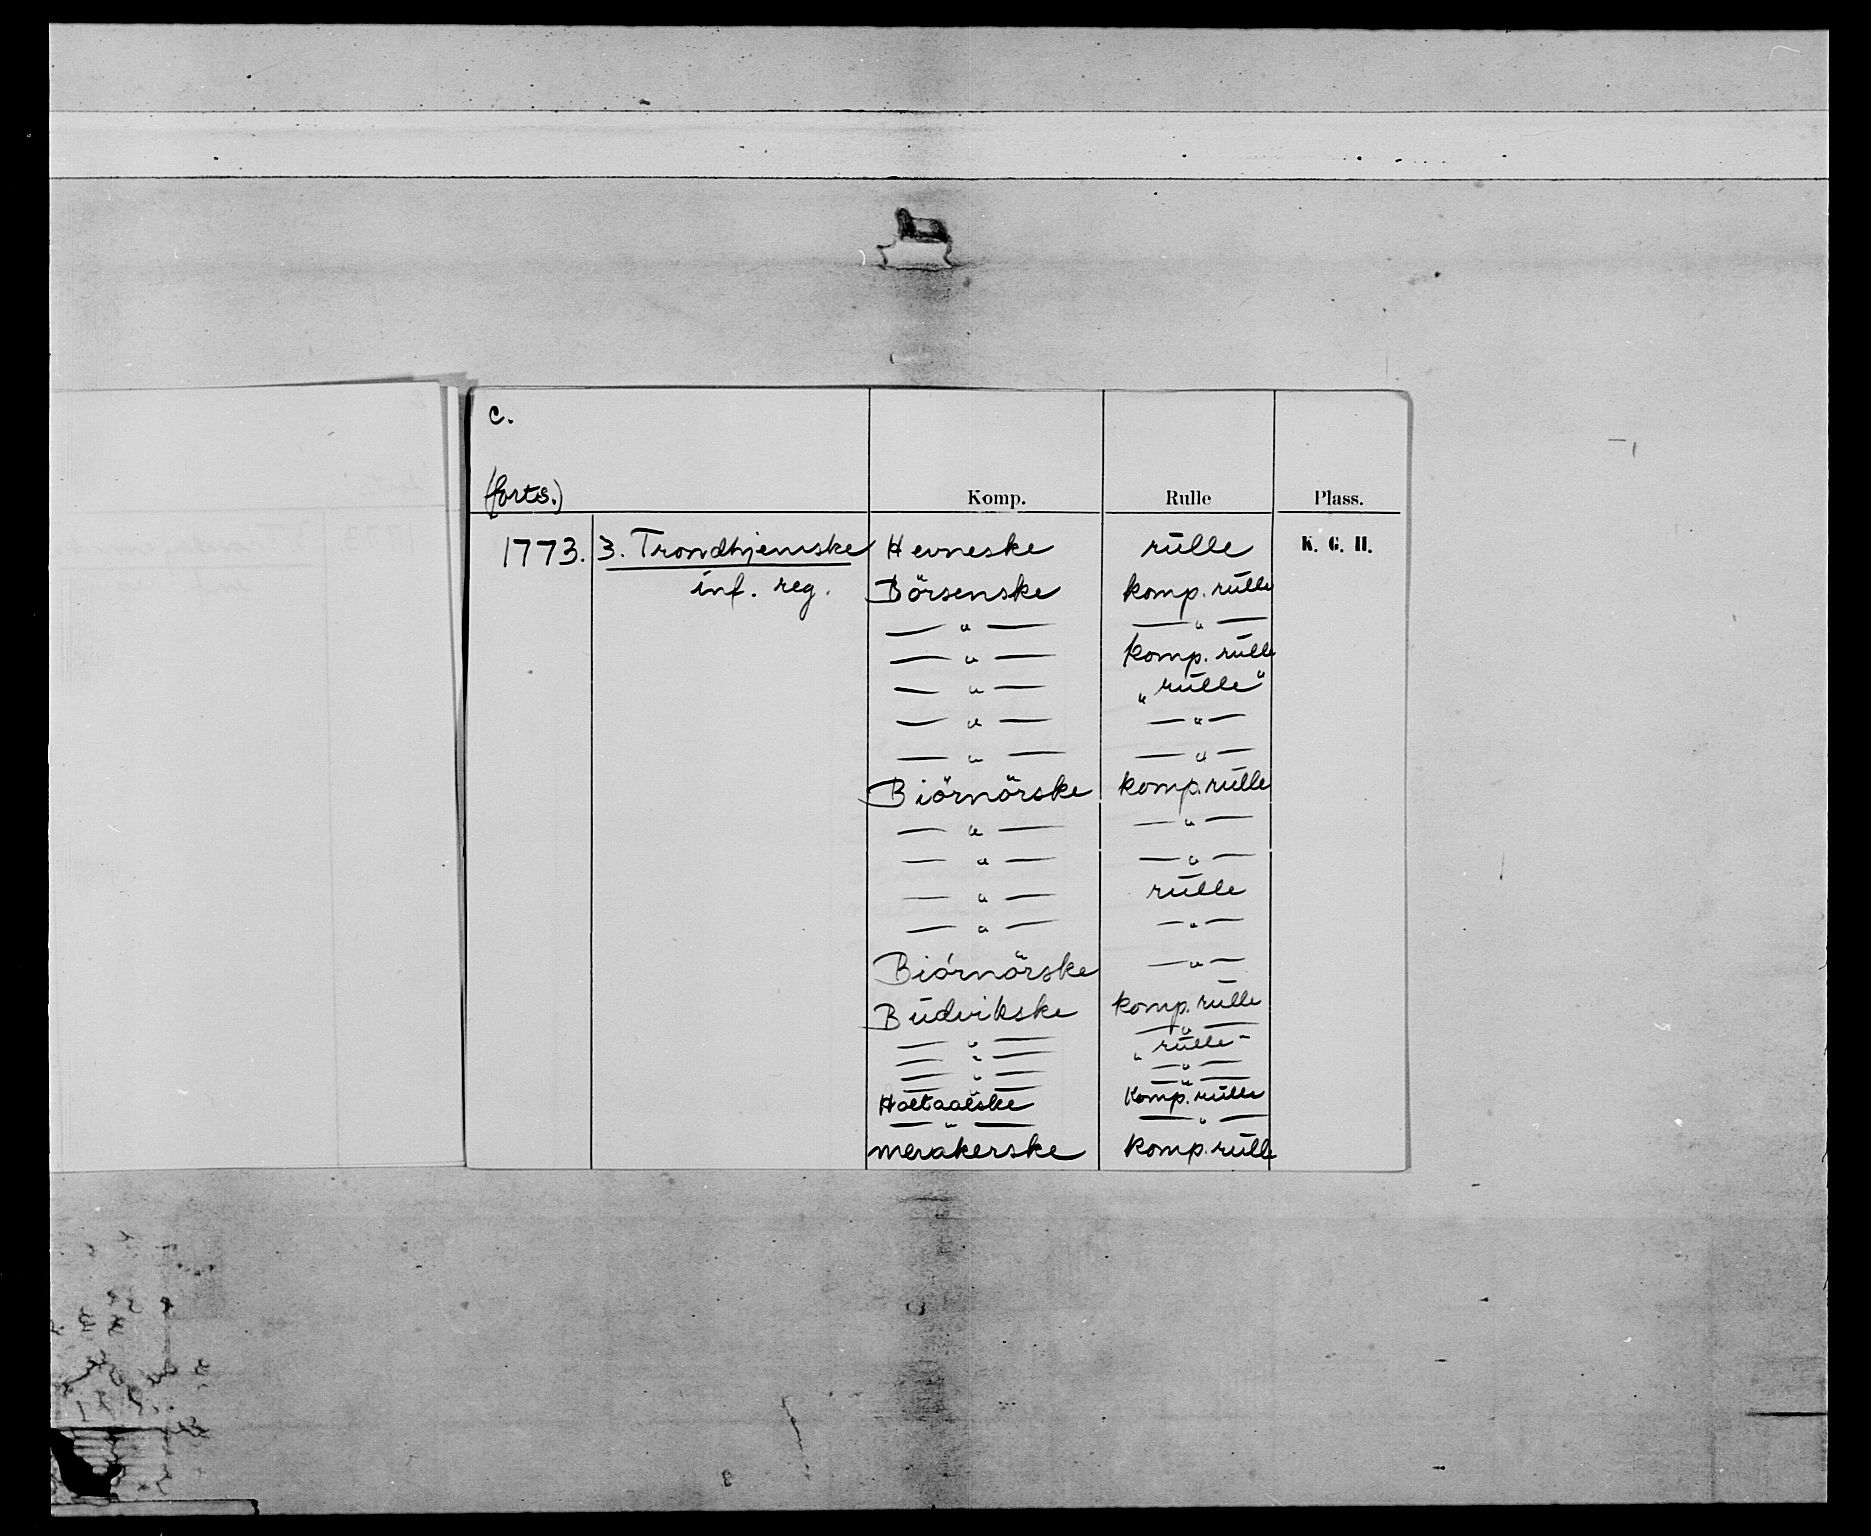 c.
(forts.) Komp. Rulle Plass.
1773. 3. Trondhjemske Hevneske rulle K. G. H.
inf. reg. Börsenske komp. rulle
— " — — " —
— " — komp. rulle
— " — "rulle"
— " — — " —
— " — — " —
Biörnörske komp. rulle
— " — — " —
— " — — " —
— " — rulle
— " — — " —
Biörnörske — " —
Budvikske komp. rulle
— " — — " —
— " — "rulle"
— " — — " —
— " — — " —
Holtaalske Komp. rulle
— " — — " —
merakerske komp. rulle